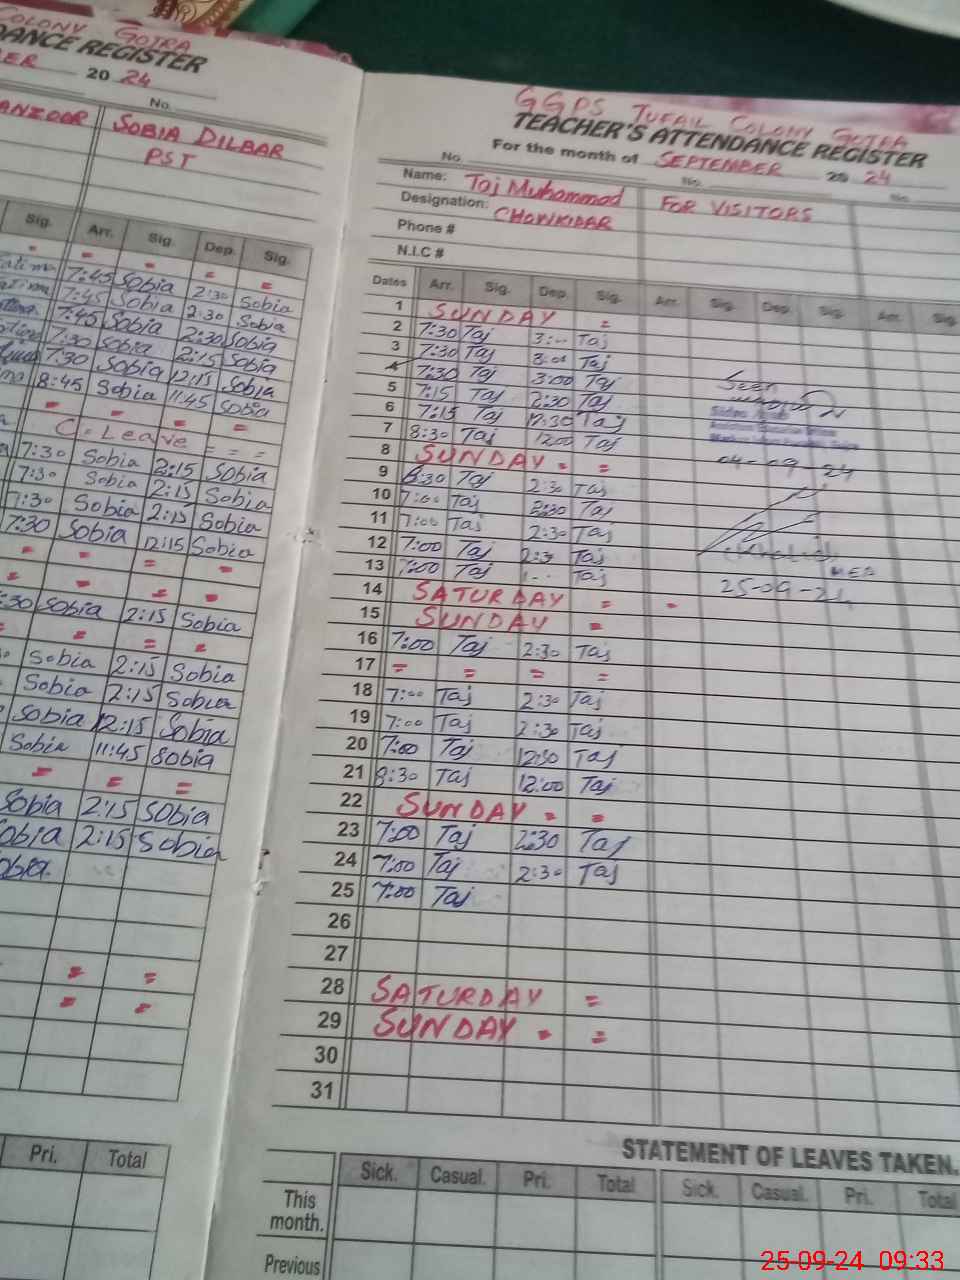 COLONY GOTRA
DANCE REGISTER
BER 20 24
No.
ANZOOR SOBIA DILBAR
PST
Sig. Arr. Sig. Dep. Sig.
= = = = =
Fatima 7:45 Sobia 2:30 Sobia
7:45 Sobia 2:30 Sobia
7:45 Sobia 2:30 Sobia
7:30 Sobia 2:15 Sobia
7:30 Sobia 12:15 Sobia
8:45 Sobia 11:45 Sobia
= = = =
C. Leave = = =
7:30 Sobia 2:15 Sobia
7:30 Sobia 2:15 Sobia
7:30 Sobia 2:15 Sobia
7:30 Sobia 12:15 Sobia
= = = =
= = = =
:30 Sobia 2:15 Sobia
= = = =
Sobia 2:15 Sobia
Sobia 2:15 Sobia
Sobia 12:15 Sobia
Sobia 11:45 Sobia
= = =
Sobia 2:15 Sobia
Sobia 2:15 Sobia
obia
= =
= =
Pri. Total
GGPS TUFAIL COLONY GOTRA
TEACHER'S ATTENDANCE REGISTER
For the month of SEPTEMBER 20 24
No. No. No.
Name: Taj Muhammad FOR VISITORS
Designation: CHOWKIDAR
Phone #
N.I.C #
Dates Arr. Sig. Dep. Sig. Arr. Sig. Dep. Sig. Arr. Sig.
1 SUNDAY =
2 7:30 Taj 3:00 Taj
3 7:30 Taj 3:00 Taj
4 7:30 Taj 3:00 Taj Seen
5 7:15 Taj 2:30 Taj
6 7:15 Taj 12:30 Taj
7 8:30 Taj 12:00 Taj
8 SUNDAY = = 04-09-24
9 6:30 Taj 2:30 Taj
10 7:00 Taj 2:30 Taj
11 7:00 Taj 2:30 Taj
12 7:00 Taj 2:30 Taj
13 7:00 Taj Taj MEA
14 SATURDAY = = 25-09-24
15 SUNDAY =
16 7:00 Taj 2:30 Taj
17 = = = =
18 7:00 Taj 2:30 Taj
19 7:00 Taj 2:30 Taj
20 7:00 Taj 12:30 Taj
21 8:30 Taj 12:00 Taj
22 SUNDAY = =
23 7:00 Taj 2:30 Taj
24 7:00 Taj 2:30 Taj
25 7:00 Taj
26
27
28 SATURDAY =
29 SUNDAY = =
30
31
STATEMENT OF LEAVES TAKEN.
Sick. Casual. Pri. Total Sick. Casual. Pri. Total
This month.
Previous
25-09-24 09:33